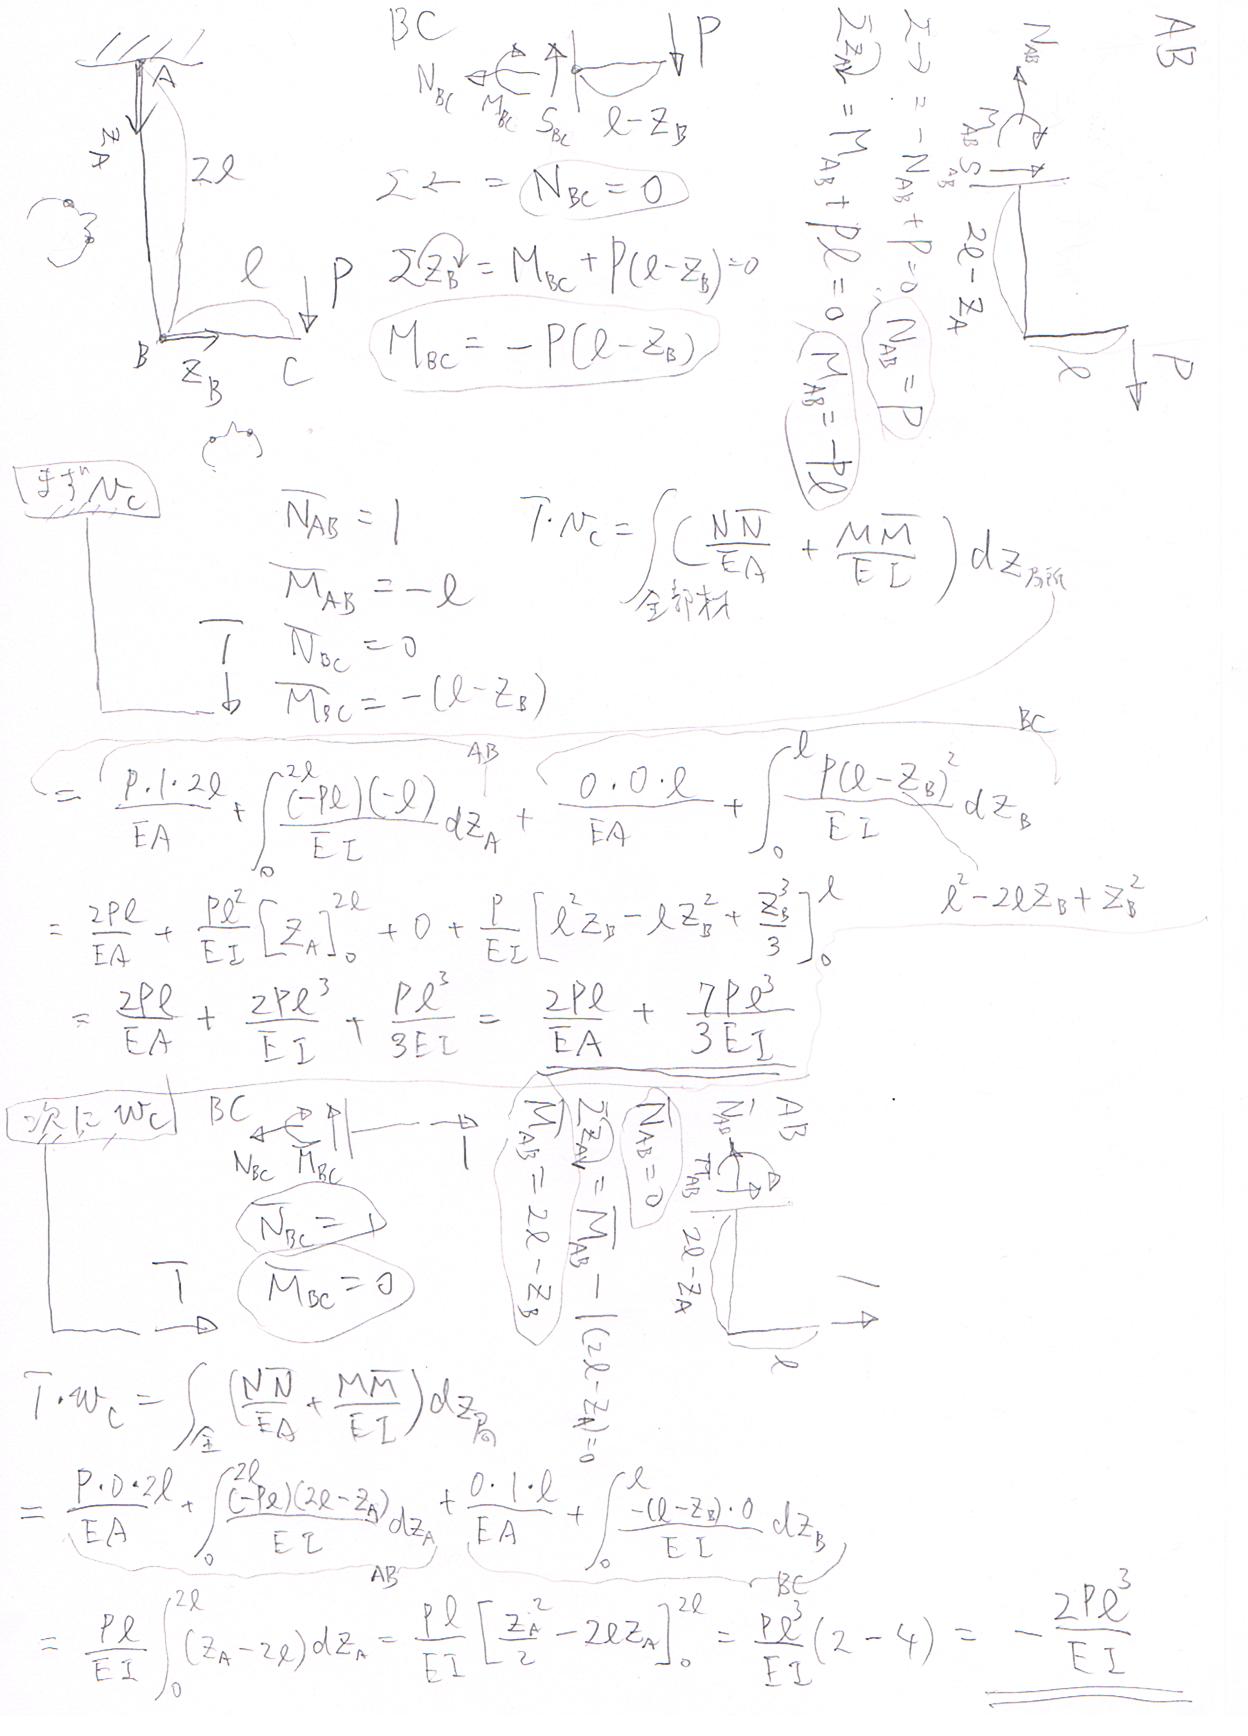 A
z_A
2l
l
P
B
z_B
C
BC
N_BC
M_BC
S_BC
l-z_B
P
Σ← = N_BC = 0
Σz_B = M_BC + P(l-z_B) = 0
M_BC = -P(l-z_B)
AB
N_AB
M_AB
S_AB
2l-z_A
l
P
Σ→ = -N_AB + P = 0
N_AB = P
Σz_A = M_AB + Pl = 0
M_AB = -Pl
まず v_C
1̄
N̄_AB = 1
M̄_AB = -l
N̄_BC = 0
M̄_BC = -(l-z_B)
1̄·v_C = ∫全部材 (NN̄/EA + MM̄/EI) dz局所
AB
BC
= P·1·2l/EA + ∫_0^2l (-Pl)(-l)/EI dz_A + 0·0·l/EA + ∫_0^l P(l-z_B)^2/EI dz_B
l^2-2lz_B+z_B^2
= 2Pl/EA + Pl^2/EI [z_A]_0^2l + 0 + P/EI [l^2z_B - lz_B^2 + z_B^3/3]_0^l
= 2Pl/EA + 2Pl^3/EI + Pl^3/3EI = 2Pl/EA + 7Pl^3/3EI
次に w_C
1̄
BC
N_BC
M̄_BC
1
N̄_BC = 1
M̄_BC = 0
AB
N̄_AB
M_AB
2l-z_A
l
1
N̄_AB = 0
Σz_A = M̄_AB - 1(2l-z_A) = 0
M̄_AB = 2l-z_B
1̄·w_C = ∫全 (NN̄/EA + MM̄/EI) dz局
= P·0·2l/EA + ∫_0^2l (-Pl)(2l-z_A)/EI dz_A + 0·1·l/EA + ∫_0^l -(l-z_B)·0/EI dz_B
AB
BC
= Pl/EI ∫_0^2l (z_A-2l)dz_A = Pl/EI [z_A^2/2 - 2lz_A]_0^2l = Pl^3/EI (2-4) = -2Pl^3/EI